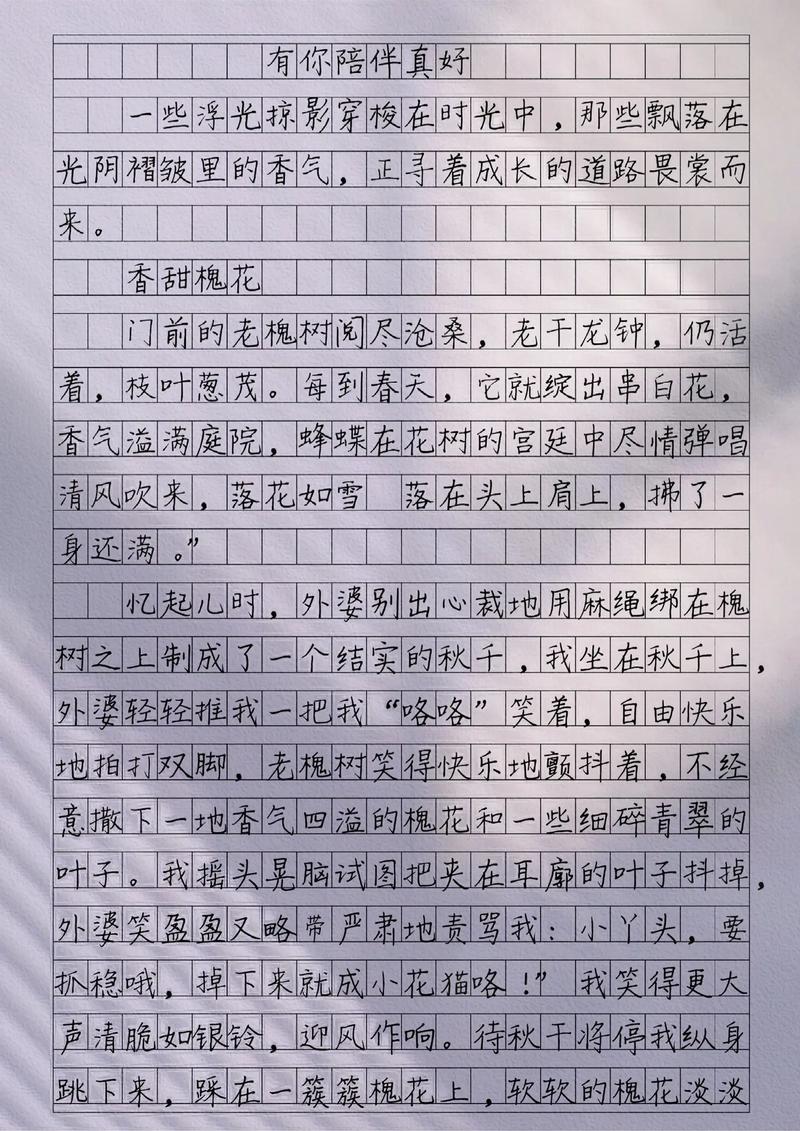 有你陪伴真好
一些浮光掠影穿梭在时光中，那些飘落在
光阴褶皱里的香气，正寻着成长的道路畏裳而
来。
香甜槐花
门前的老槐树阅尽沧桑，老干龙钟，仍活
着，枝叶葱茂。每到春天，它就绽出串白花，
香气溢满庭院，蜂蝶在花树的宫廷中尽情弹唱
清风吹来，落花如雪 落在头上肩上，拂了一
身还满。”
忆起儿时，外婆别出心裁地用麻绳绑在槐
树之上制成了一个结实的秋千，我坐在秋千上，
外婆轻轻推我一把我“咯咯”笑着，自由快乐
地拍打双脚，老槐树笑得快乐地颤抖着，不经
意撒下一地香气四溢的槐花和一些细碎青翠的
叶子。我摇头晃脑试图把夹在耳廓的叶子抖掉，
外婆笑盈盈又略带严肃地责骂我：小丫头，要
抓稳哦，掉下来就成小花猫咯！”我笑得更大
声清脆如银铃，迎风作响。待秋干将停我纵身
跳下来，踩在一簇簇槐花上，软软的槐花淡淡